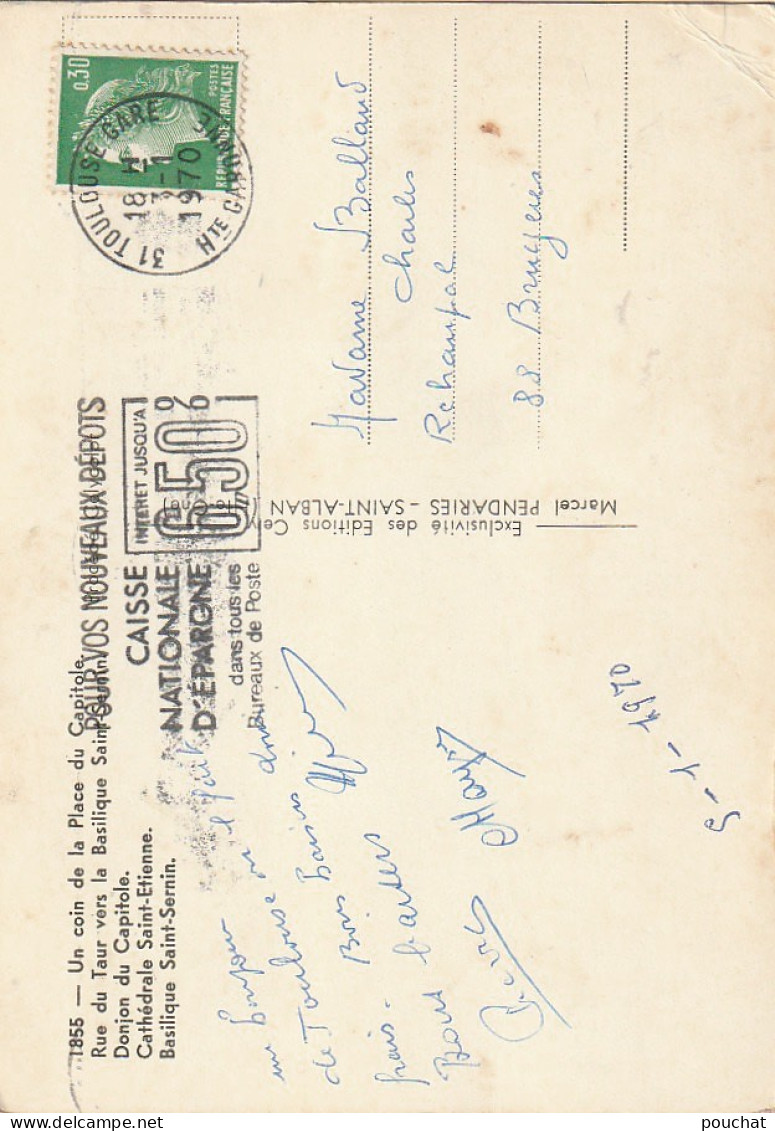 1855 — Un coin de la Place du Capitole.
Rue du Taur vers la Basilique Saint-Sernin.
Donjon du Capitole.
Cathédrale Saint-Etienne.
Basilique Saint-Sernin.
un bonjour
de Toulouse ou il fait
frais. Bons baisers
Bons baisers
5-1-1970
Exclusivité des Editions Cely
Marcel PENDARIES - SAINT-ALBAN
POUR VOS NOUVEAUX DÉPOTS
CAISSE
NATIONALE
D'ÉPARGNE
INTERET JUSQU'A
6,50%
dans tous les
Bureaux de Poste
31 TOULOUSE-GARE
18 H
-1
1970
HTE GARONNE
0,30
POSTES
REPUBLIQUE FRANÇAISE
Madame Balland
Charles
Rehaupal
88 Bruyères
pouchat